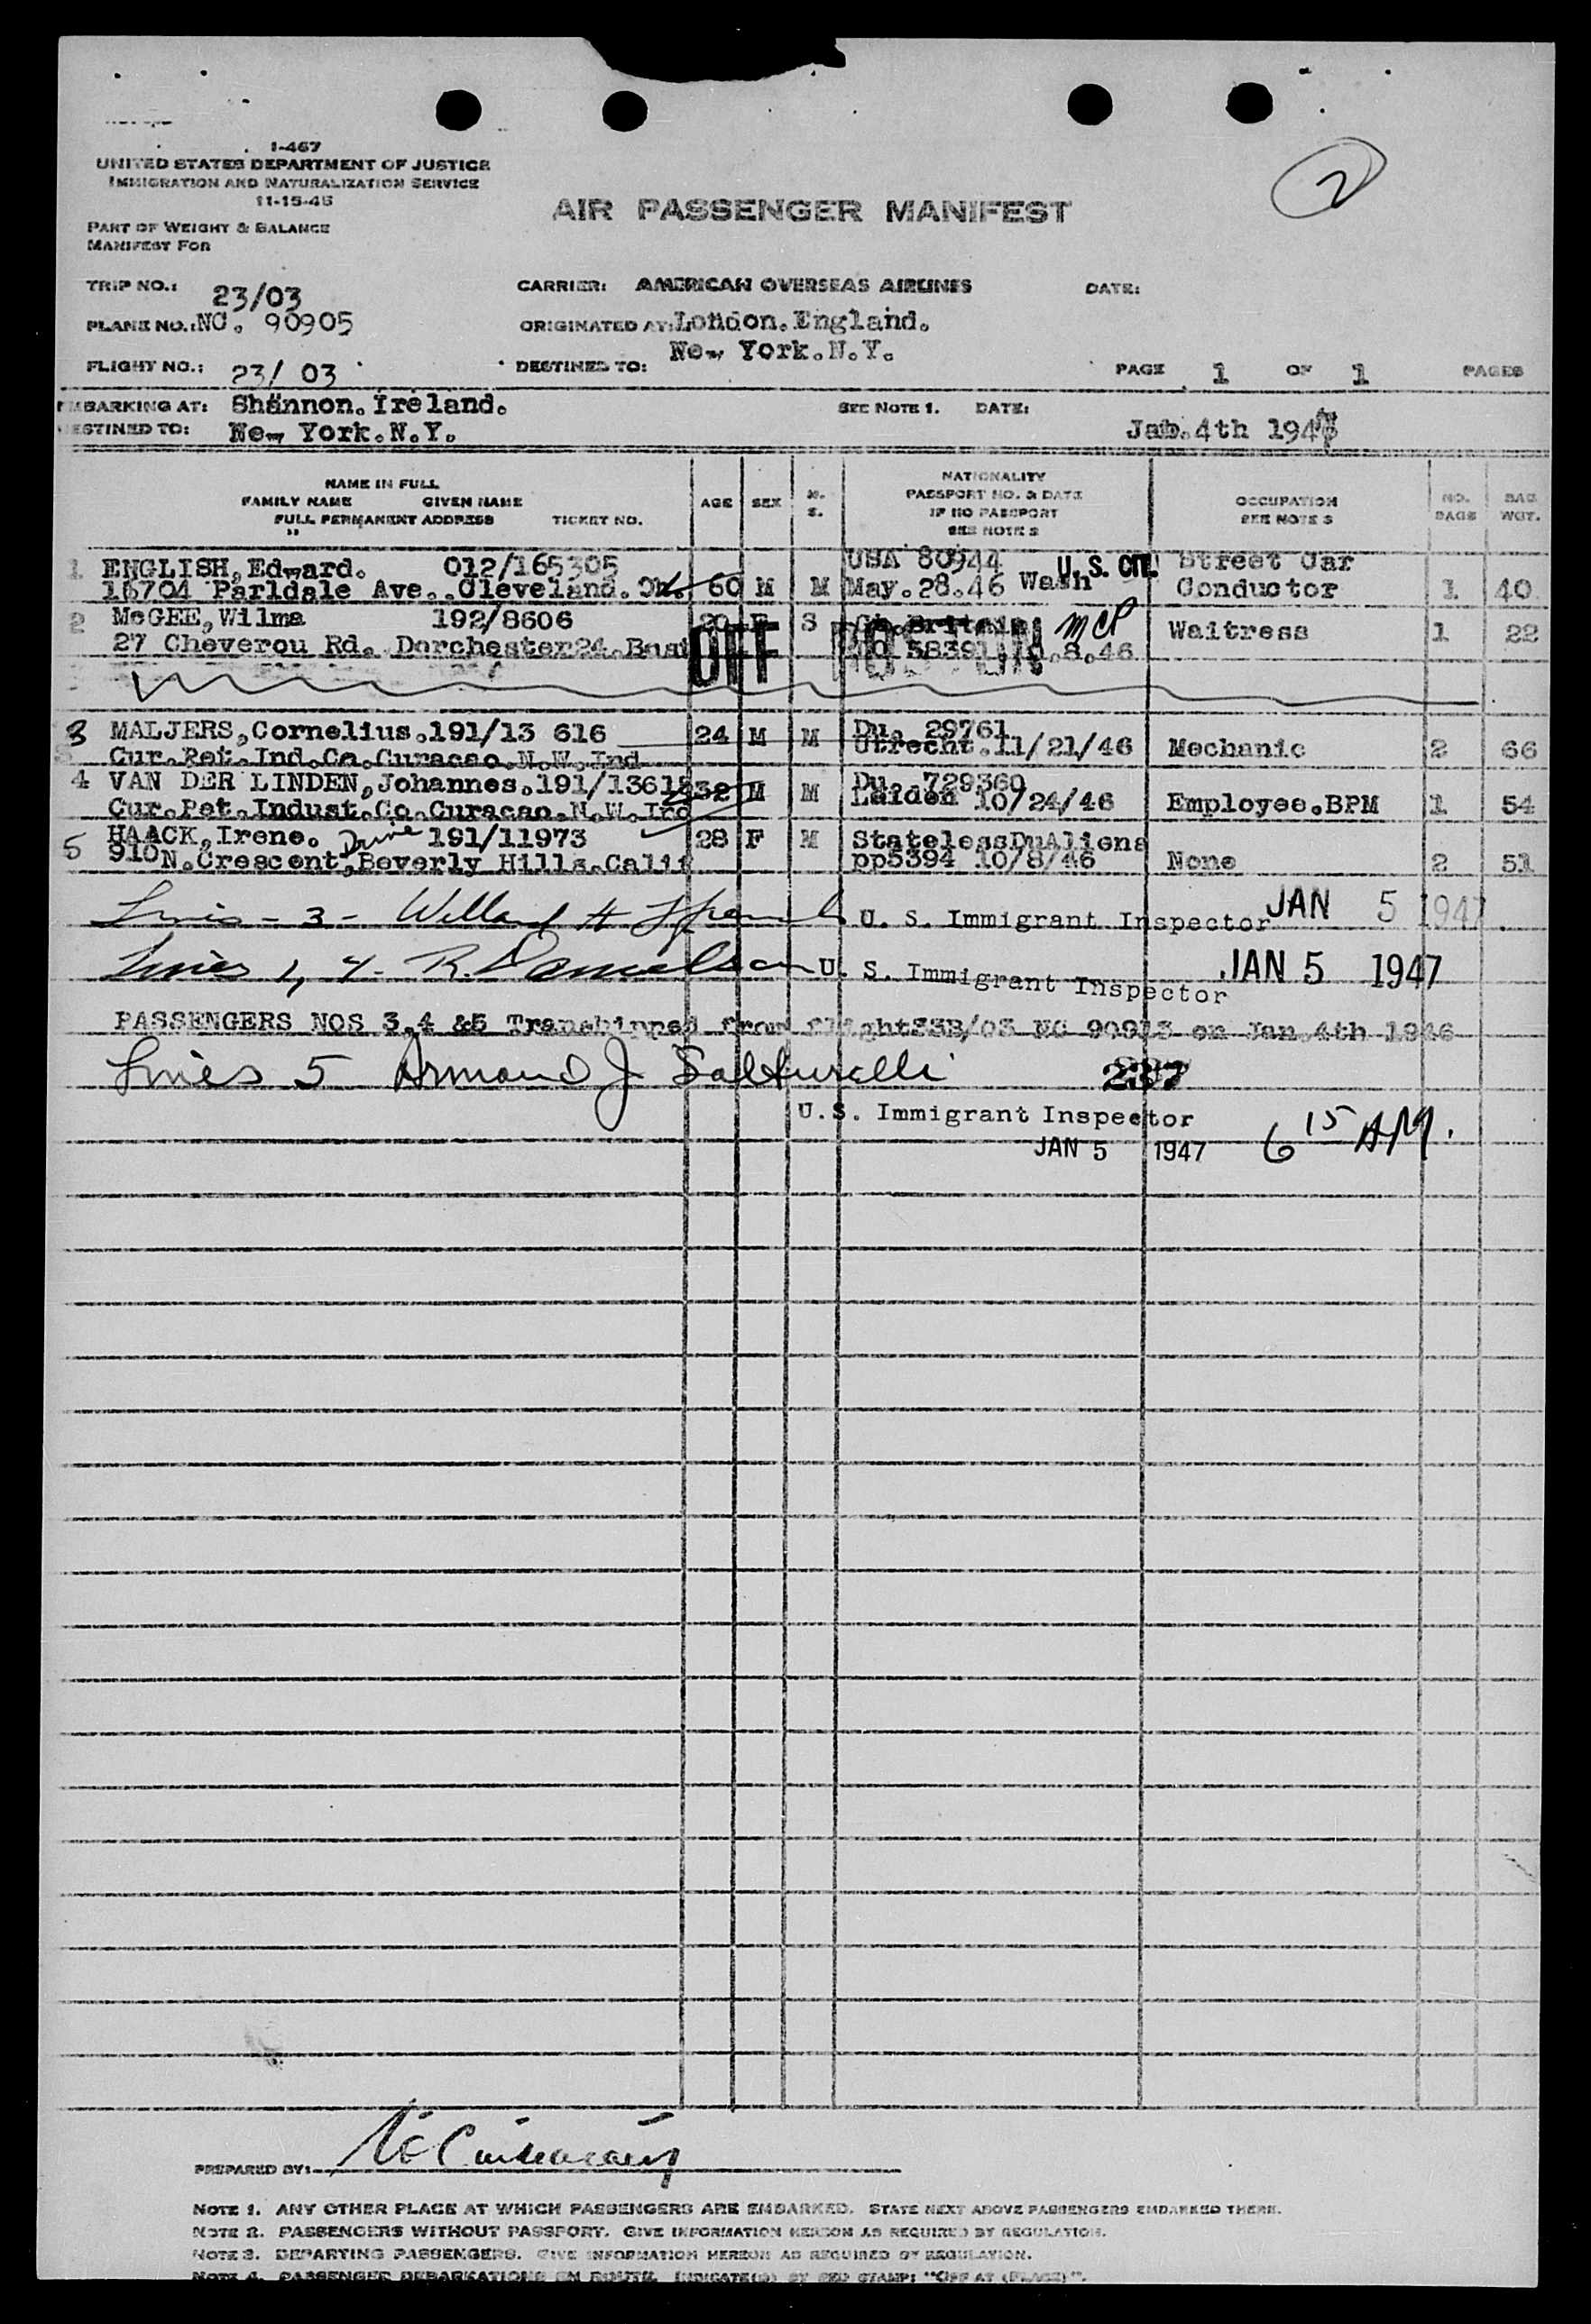 2
I-467
UNITED STATES DEPARTMENT OF JUSTICE
IMMIGRATION AND NATURALIZATION SERVICE
11-15-45
AIR PASSENGER MANIFEST
PART OF WEIGHT & BALANCE
MANIFEST FOR
TRIP NO.: 23/03 CARRIER: AMERICAN OVERSEAS AIRLINES DATE:
PLANE NO.: NC. 90905 ORIGINATED AT: London. England.
FLIGHT NO.: 23/ 03 DESTINED TO: New York. N.Y. PAGE 1 OF 1 PAGES
EMBARKING AT: Shannon. Ireland. SEE NOTE 1. DATE:
DESTINED TO: New York. N.Y. Jan. 4th 1947
NAME IN FULL
FAMILY NAME GIVEN NAME
FULL PERMANENT ADDRESS TICKET NO. AGE SEX M. S.
NATIONALITY
PASSPORT NO. & DATE
IF NO PASSPORT
SEE NOTE 2
OCCUPATION
SEE NOTE 3
NO. BAGS BAG WGT.
1 ENGLISH, Edward. 012/165305 USA 80944 U.S. CIT. Street Car
Parldale Ave.. Cleveland. 60 M M May. 28. 46 Wash Conductor 1 40
2 McGEE, Wilma 192/8606 20 F S Gt. Britain McP Waitress 1 22
27 Cheverou Rd. Dorchester 24. OFF 58391 .8.46
3 MALJERS, Cornelius. 191/13 616 24 M M Du. 29761 Mechanic 2 66
Cur. Pet. Ind. Co. Curacao. N.W. Ind Utrecht. 11/21/46
4 VAN DER LINDEN, Johannes. 191/13618 32 M M Du. 729360 Employee. BPM 1 54
Cur. Pet. Indust. Co. Curacao. N.W. Ind Leiden 10/24/46
5 HAACK, Irene. 191/11973 28 F M Stateless Du Aliens None 2 51
910 N. Crescent Drive, Beverly Hills. Calif pp5394 10/8/46
Lines - 3 - Willard H U. S. Immigrant Inspector JAN 5 1947
Lines 1, 4 - R. Danielson U. S. Immigrant Inspector JAN 5 1947
PASSENGERS NOS 3,4 &5 Transhipped from flight 23B/03 NC 90913 on Jan. 4th 1946
Lines 5 Armand J Salturelli 237
U.S. Immigrant Inspector
JAN 5 1947 6 15 AM.
PREPARED BY:
NOTE 1. ANY OTHER PLACE AT WHICH PASSENGERS ARE EMBARKED. STATE NEXT ABOVE PASSENGERS EMBARKED THERE.
NOTE 2. PASSENGERS WITHOUT PASSPORT. GIVE INFORMATION HEREON AS REQUIRED BY REGULATION.
NOTE 3. DEPARTING PASSENGERS. GIVE INFORMATION HEREON AS REQUIRED BY REGULATION.
NOTE 4. PASSENGER DEBARKATIONS EN ROUTE. INDICATE(D) BY RED STAMP: "OFF AT (PLACE)".